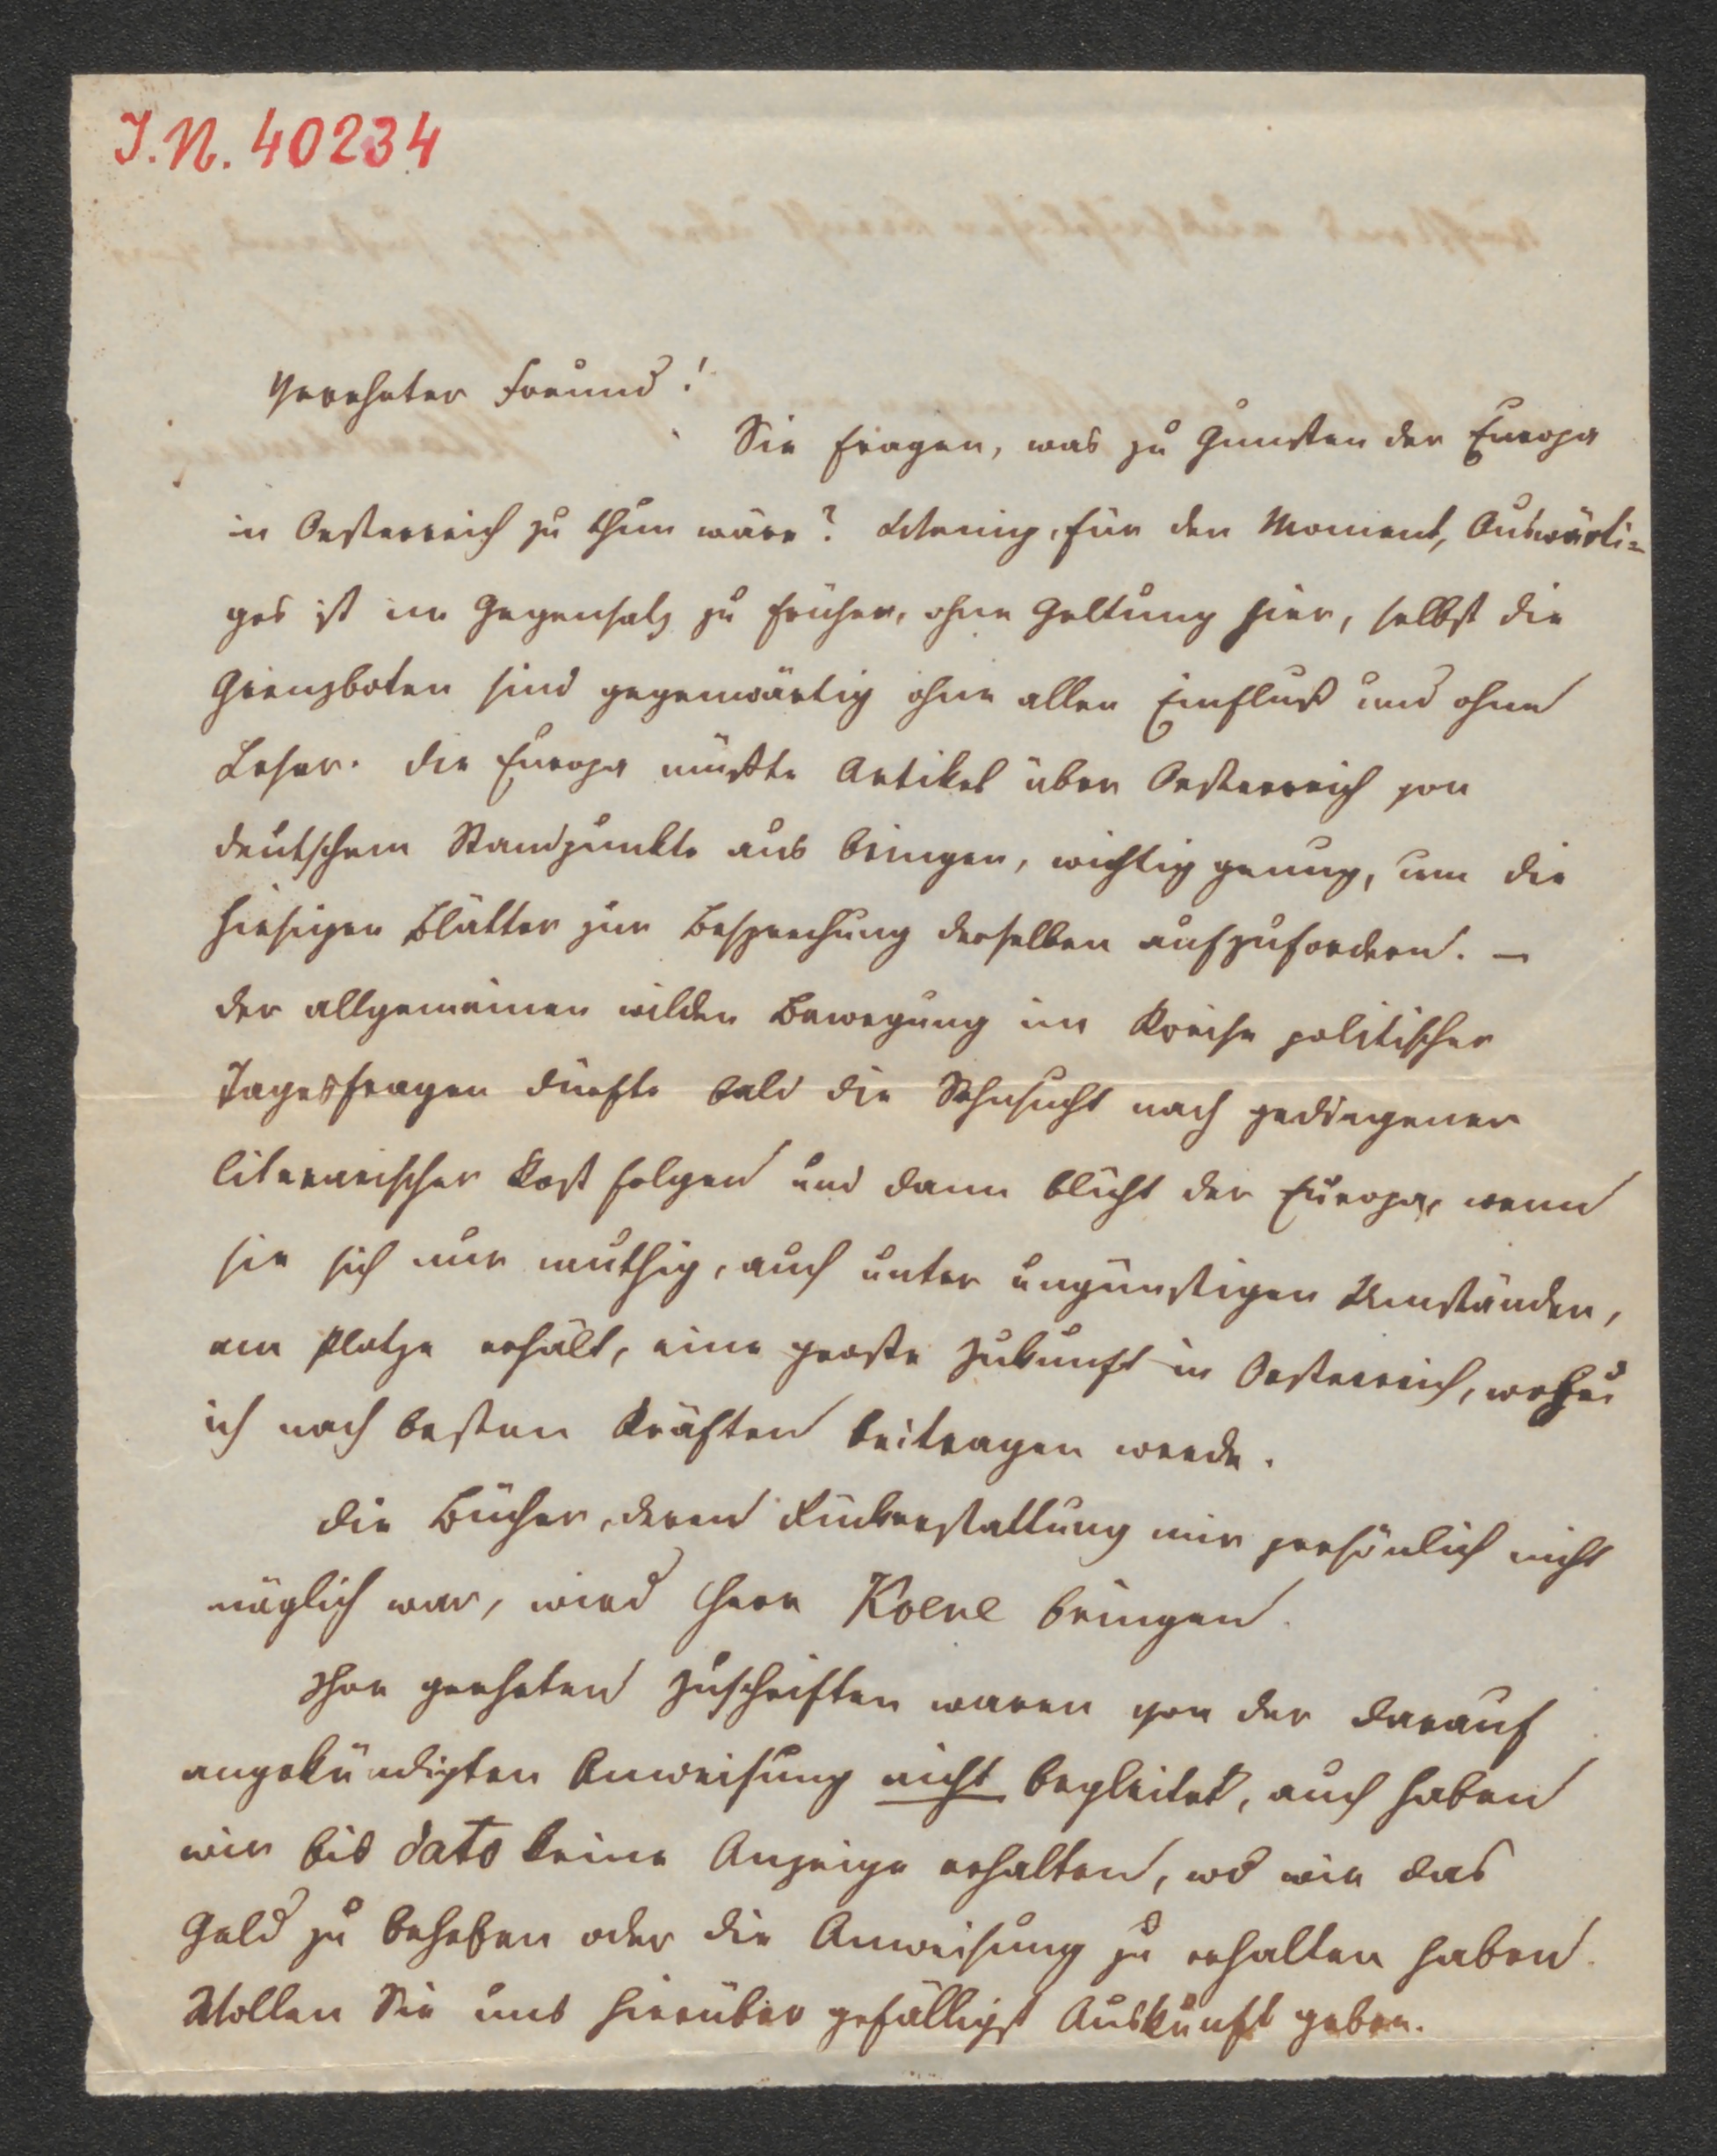 I.N. 40234
Verehrter Freund!
Sie fragen, was zu Gunsten der Europa
in Oesterreich zu thun wäre? Wenig, für den Moment, Auswärti=
ges ist im Gegensatz zu früher, ohne Geltung hier, selbst die
Grenzboten sind gegenwärtig ohne allen Einfluß und ohne
Leser. Die Europa müßte Artikel über Oesterreich von
deutschem Standpunkte aus bringen, wichtig genug, um die
hiesigen Blätter zur Besprechung derselben aufzufordern. —
Der allgemeinen wilden Bewegung im Kreise politischer
Tagesfragen dürfte bald die Sehnsucht nach gediegener
literarischer Kost folgen und dann blüht der Europa, wenn
sie sich nur muthig, auch unter ungünstigen Umständen,
am Platze erhält, eine große Zukunft in Oesterreich, wobei
ich nach besten Kräften beitragen werde.
Die Bücher, deren Rückerstattung mir persönlich nicht
möglich war, wird Herr bringen.
Ihre geehrten Zuschriften waren von der darauf
angekündigten Anweisung nicht begleitet, auch haben
wir bis dato keine Anzeige erhalten, wo wir das
Geld zu beheben oder die Anweisung zu erhalten haben.
Wollen Sie uns hierüber gefälligst Auskunft geben.